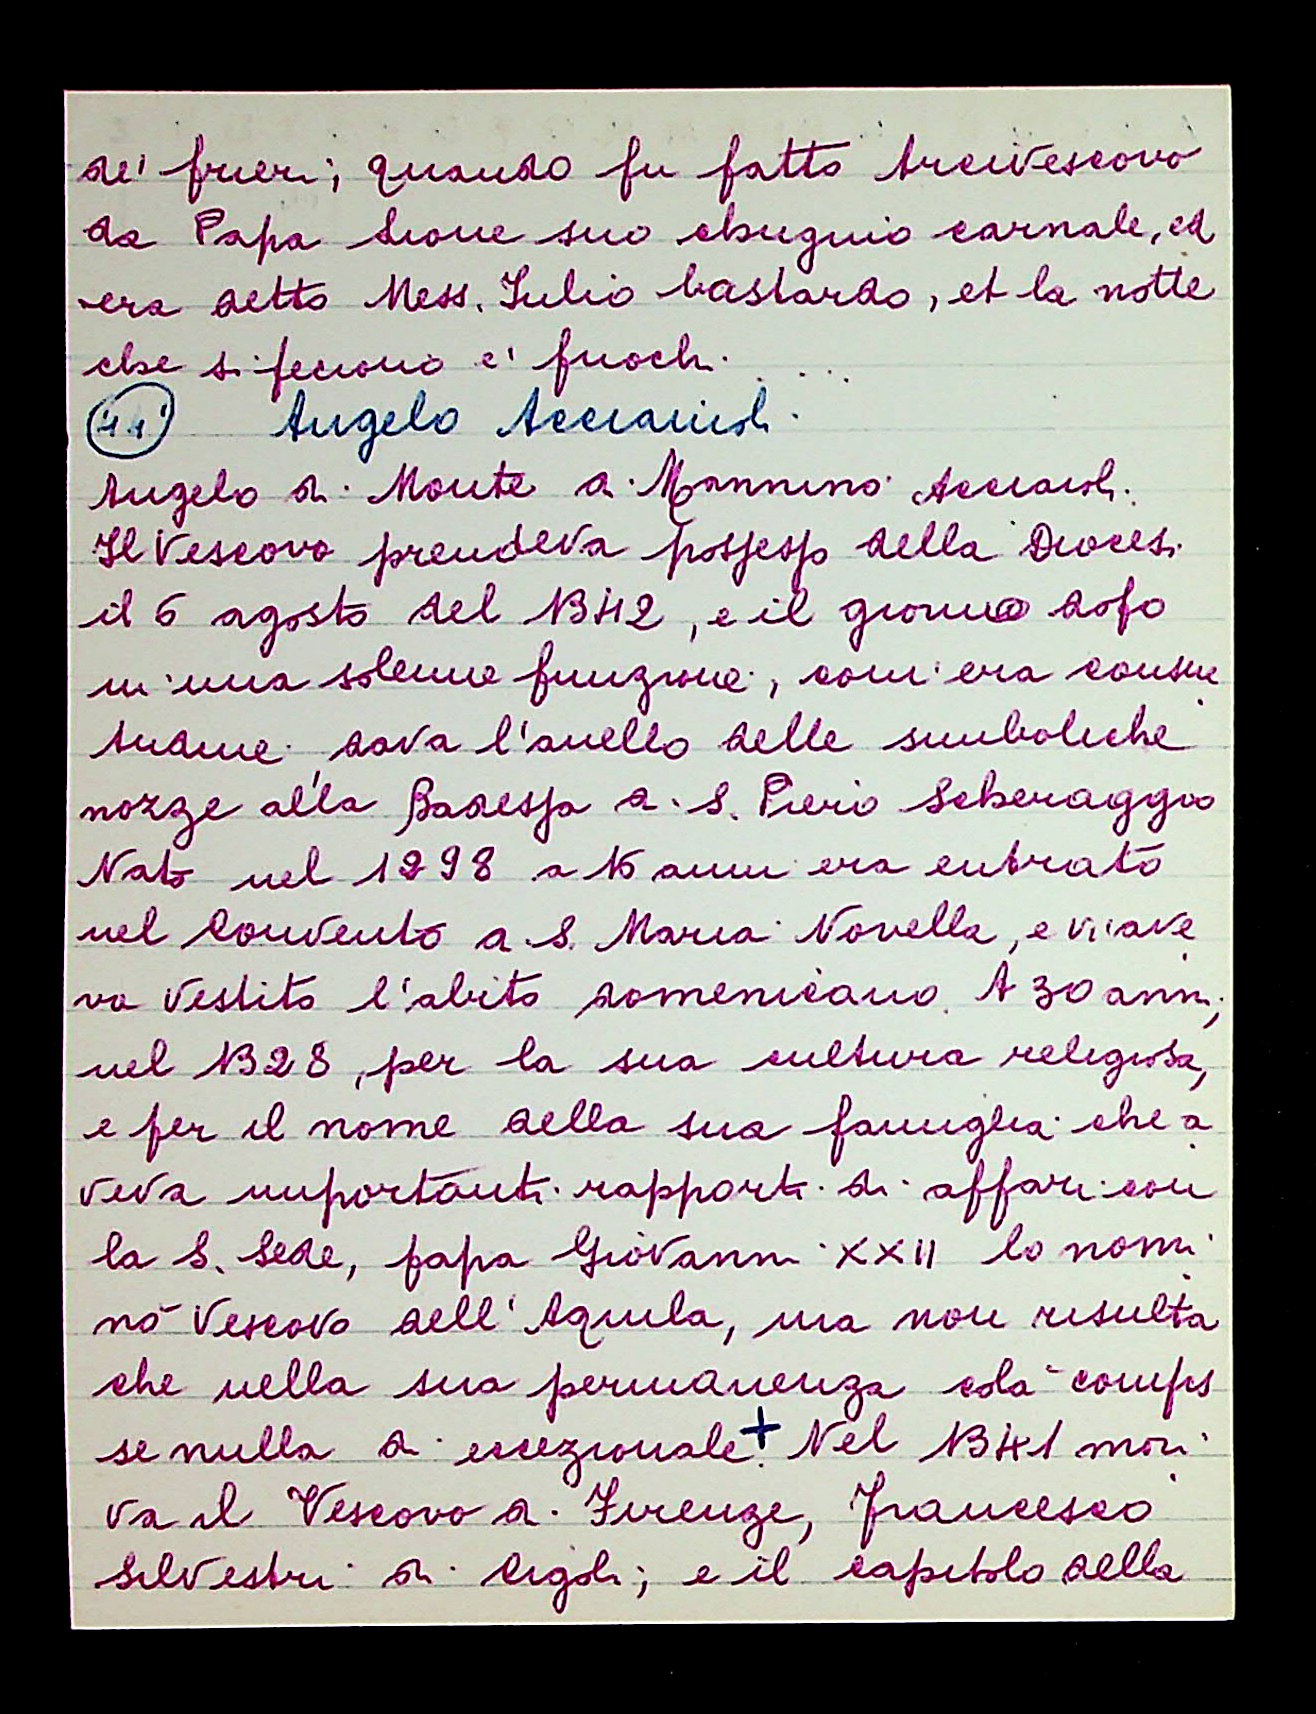 de' frieri; quando fu fatto Arcivescovo
da Papa Lione suo chugino carnale, ed
era detto Mess. Iulio bastardo, et la notte
che si feciono e' fuochi. . . . .
44 Angelo Acciaiuoli.
Angelo di Monte di Mannino Acciaioli.
Il Vescovo prendeva possesso della Diocesi
il 6 agosto del 1342, e il giorno dopo
in una solenne funzione, com'era consue
tudine dava l'anello delle simboliche
nozze alla Badessa di S. Piero Scheraggio
Nato nel 1298 a 16 anni era entrato
nel Convento di S. Maria Novella, e vi ave
va vestito l'abito domenicano. A 30 anni,
nel 1328, per la sua cultura religiosa,
e per il nome della sua famiglia che a
veva importanti rapporti di affari con
la S. Sede, papa Giovanni XXII lo nomi
nò Vescovo dell'Aquila, ma non risulta
che nella sua permanenza colà compis
se nulla di eccezionale. + Nel 1341 mori
va il Vescovo di Firenze, Francesco
Silvestri di Cigoli; e il capitolo della